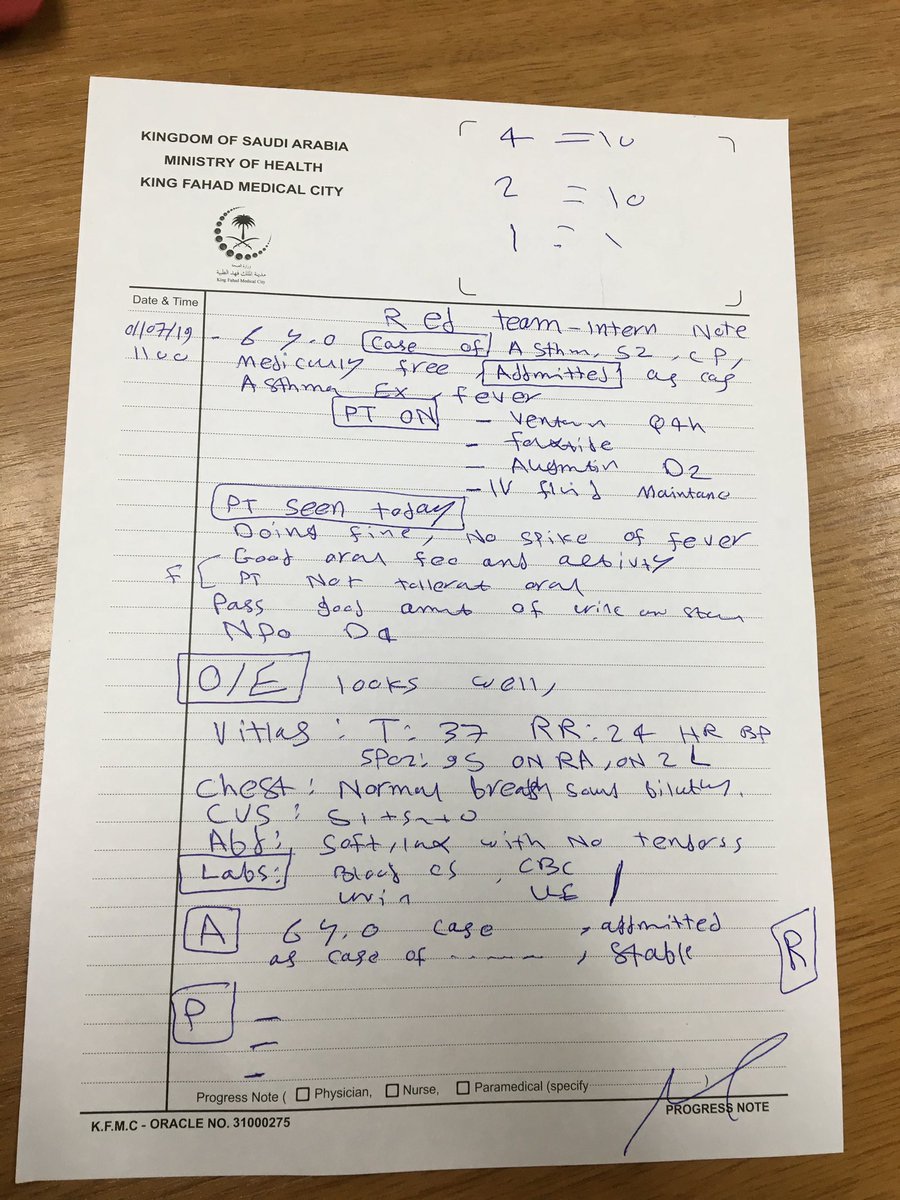 KINGDOM OF SAUDI ARABIA
MINISTRY OF HEALTH
KING FAHAD MEDICAL CITY
4 = 10
2 = 10
1 = 1
King Fahad Medical City
Date & Time
Red team - Intern Note
01/07/19 - 6 y.o Case of Asthm, SZ, CP,
1100 Medicully free, Addmitted as cas
Asthma Ex, fever
PT ON - Q4h
-
- Augmtin D2
- IV fluid Maintanc
PT seen today
Doing fine, No spike of fever
Good oral fee and activity
F PT Not tollerat oral
Pass good amnt of urine
NPO D4
O/E looks well,
Vitlas : T: 37 RR: 24 HR BP
SPO2: 95 ON RA, ON 2 L
Chest : Normal breath
CVS : S1+S2+0
Abd: Soft, lax with No
Labs: Blood CS, CBC
urin
A 6 y.o case , admitted
as case of ------ , Stable
R
P -
-
-
Progress Note ( Physician, Nurse, Paramedical (specify )
PROGRESS NOTE
K.F.M.C - ORACLE NO. 31000275